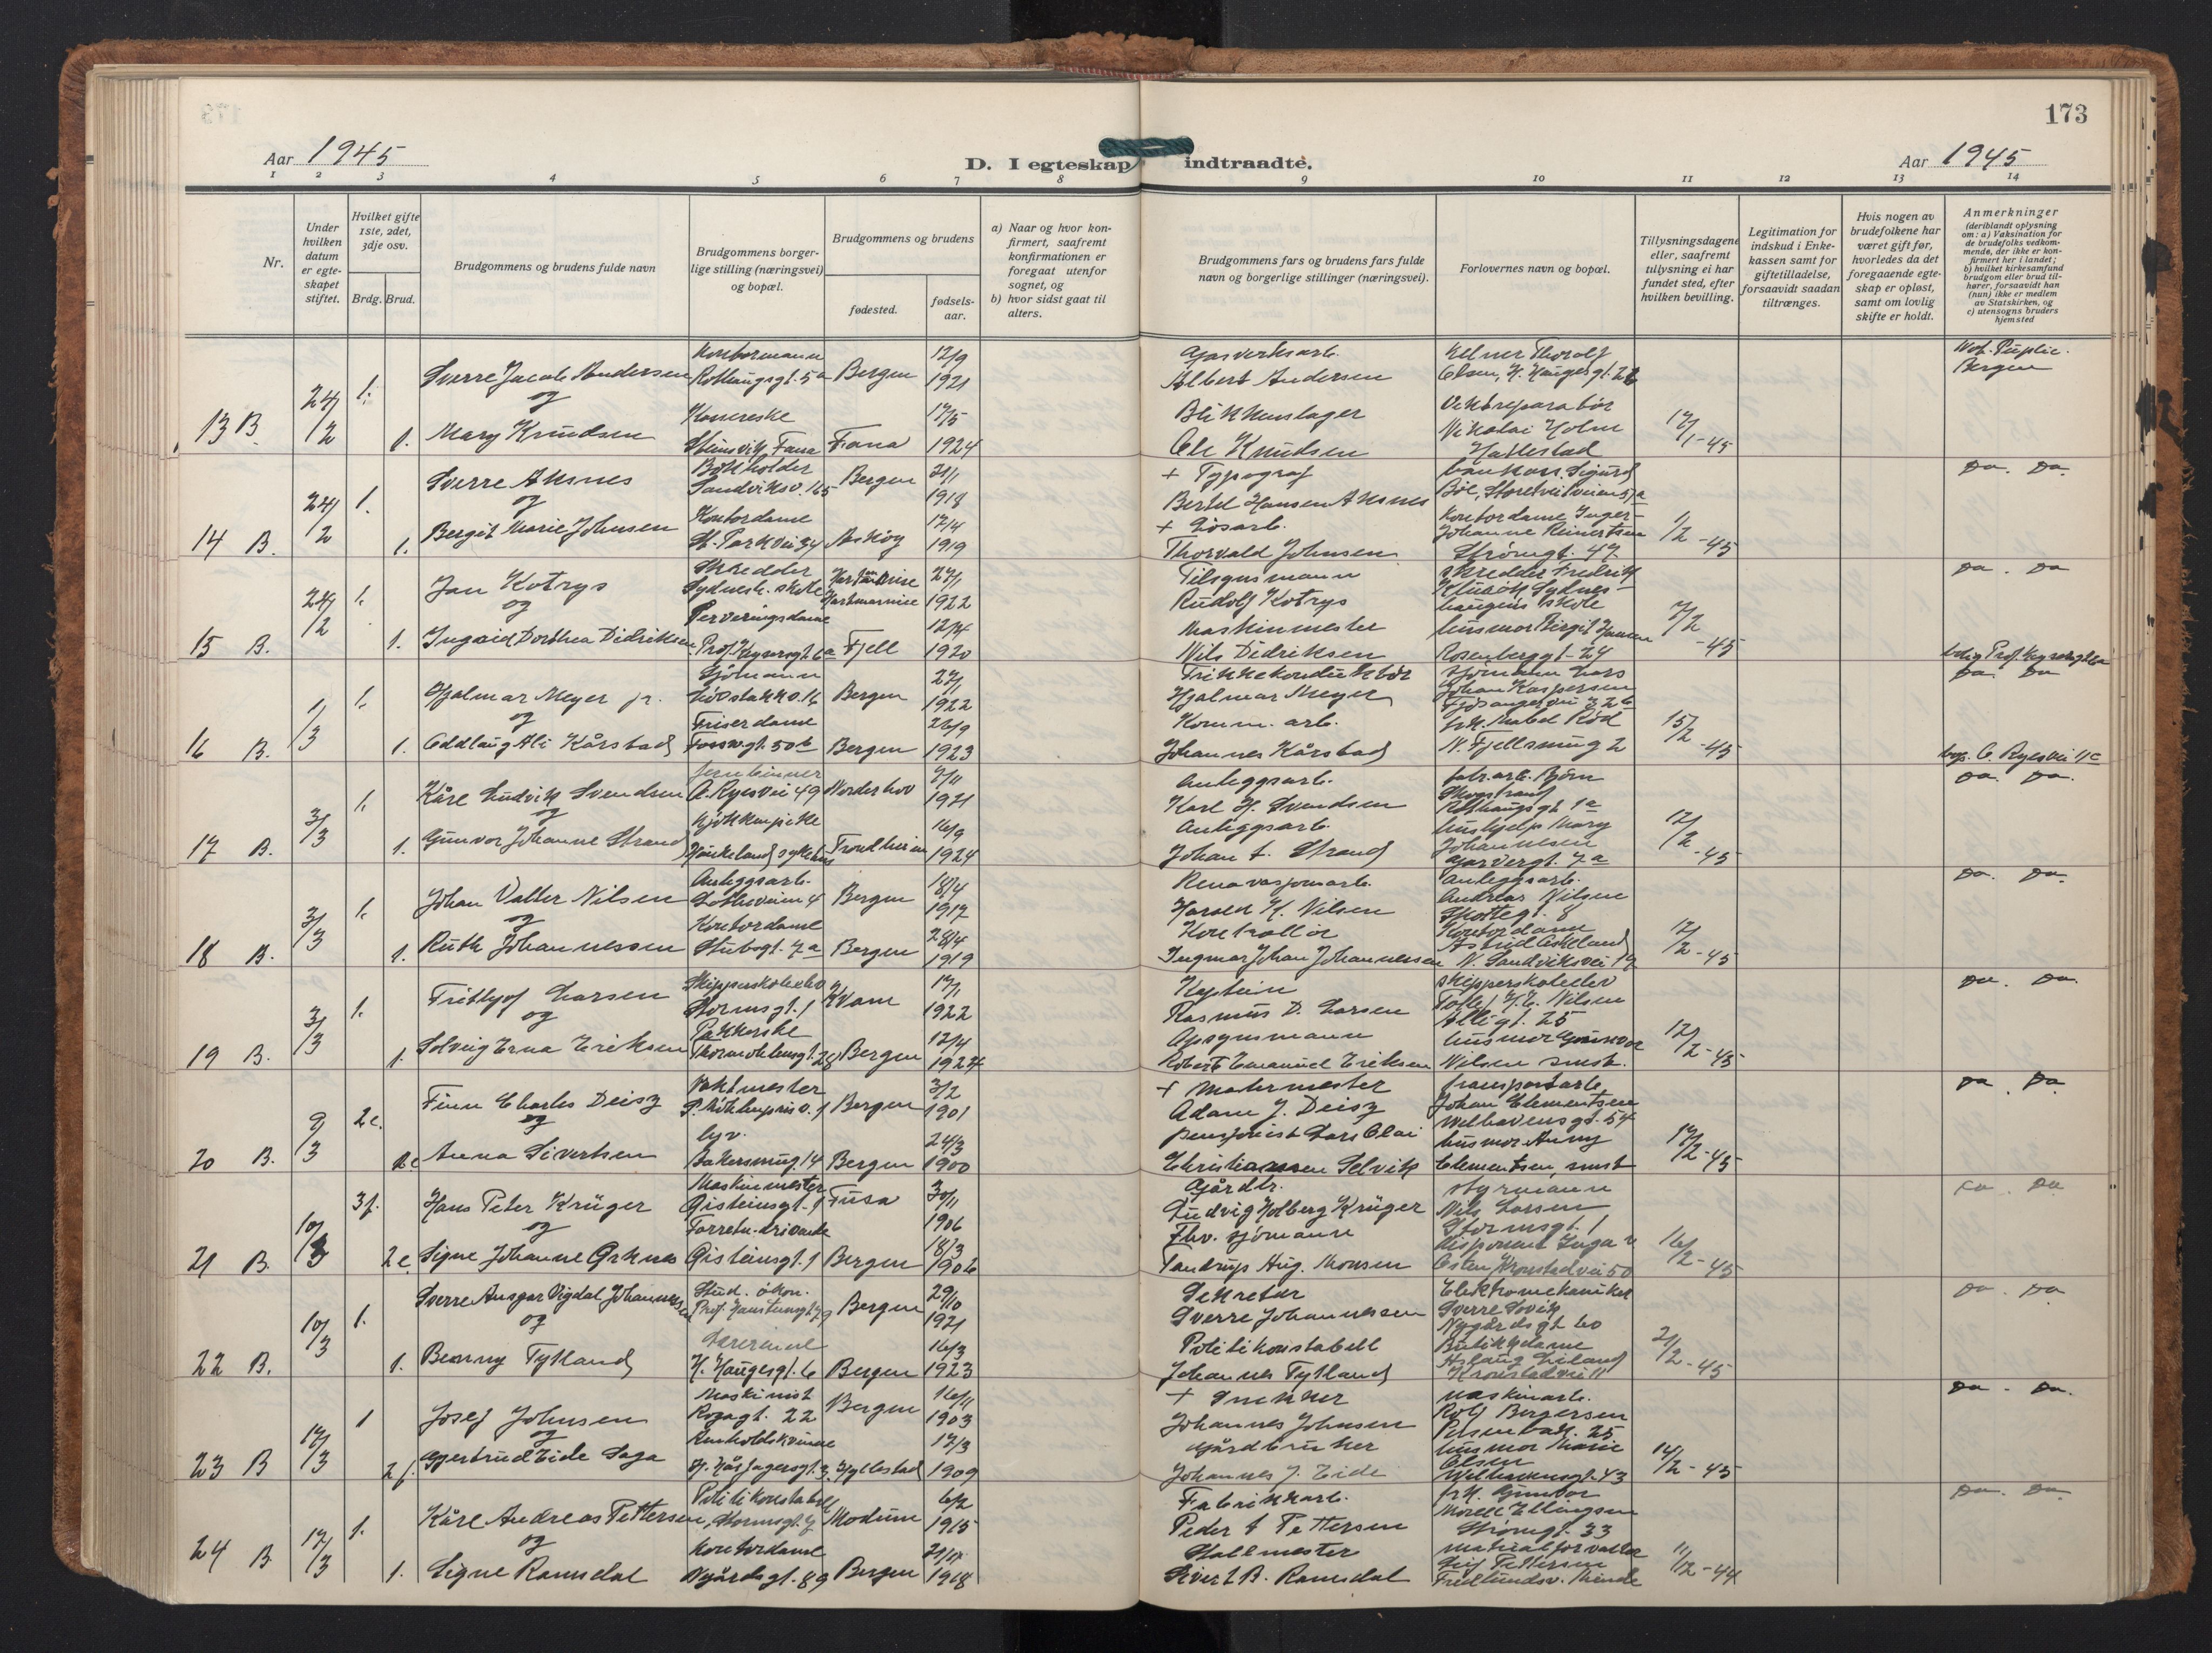 173
Aar 1945
D. I egteskap indtraadte.
Aar 1945
1 2 3 4 5 6 7 8 9 10 11 12 13 14
Nr.
Under hvilken datum er egteskapet stiftet.
Hvilket gifte 1ste, 2det, 3dje osv.
Brdg. Brud.
Brudgommens og brudens fulde navn
Brudgommens borgerlige stilling (næringsvei) og bopæl.
Brudgommens og brudens
fødested.
fødselsaar.
a) Naar og hvor konfirmert, saafremt konfirmationen er foregaat utenfor sognet, og
b) hvor sidst gaat til alters.
Brudgommens fars og brudens fars fulde navn og borgerlige stillinger (næringsvei).
Forlovernes navn og bopæl.
Tillysningsdagene eller, saafremt tillysning ei har fundet sted, efter hvilken bevilling.
Legitimation for indskud i Enkekassen samt for giftetilladelse, forsaavidt saadan tiltrænges.
Hvis nogen av brudefolkene har været gift før, hvorledes da det foregaaende egteskap er opløst, samt om lovlig skifte er holdt.
Anmerkninger (deriblandt oplysning om: a) Vaksination for de brudefolks vedkommende, der ikke er konfirmert her i landet; b) hvilket kirkesamfund brudgom eller brud tilhører, forsaavidt han (hun) ikke er medlem av Statskirken, og c) utensogns bruders hjemsted
13 B. 24/2 1. Sverre Jacob Andersen Kontormann Rothaugsgt. 5a Bergen 12/9 1921 Gasverksarb. Albert Andersen Kelner Thoralf Olsen, H. Haugesgt. 26 Not. Puplic. Bergen
og
1. Mary Knudsen Fana 17/5 1924 Blikkenslager Ole Knudsen Vektreparatør Nikolai Holm 17/1-45
14 B. 24/2 1. Sverre Aksnes Bokholder Sandviksv. 165 Bergen 21/1 1918 + Typograf Bertel Hansen Aksnes Da. Da.
og
1. Bergit Marie Johnsen Kontordame St. Parkvei 34 Askøy 17/4 1919 + Løsarb. Thorvald Johnsen Kontordame Inger-Johanne Reinertsen Strømgt. 47 1/2-45
15 B. 24/2 1. Jan Kotrys Skredder 27/1 1922 Tilsynsmann Rudolf Kotrys Skredder Fredrik Da. Da
og
1. Ingrid Dorthea Didriksen Prof. Keysersgt. 6a Fjell 12/4 1920 Maskinmester Nils Didriksen husmor Birgit Rosenberggt. 24 7/2-45
16 B. 1/3 1. Hjalmar Meyer jr. Sjømann Bergen 27/1 1922 Trikkekonduktør Hjalmar Meyer Sjømann Lars Johan Kaspersen Da. Da
og
1. Oddlaug Ali Kårstad Friserdame Fossw.gt. 50b Bergen 26/9 1923 Komm. arb. Johannes Kårstad frk. Mabel Rød N. Fjellsmug 2 15/2-45
17 B. 3/3 1. Kåre Ludvik Svendsen Jernbinner C. Ryesvei 49 Norderhov 7/11 1921 Anleggsarb. Karl H. Svendsen fabr.arb. Bjørn Skogstrand Rothaugsgt 1a Da. Da.
og
1. Gunvor Johanne Strand Kjøkkenpike Haukeland sykehus Trondheim 16/9 1924 Anleggsarb. Johan L. Strand hushjelp Mary Johannesen 12/2-45
18 B. 3/3 1. Johan Valter Nilsen Anleggsarb. Lotheveien 4 Bergen 18/4 1917 Renovasjonsarb. Harald K. Nilsen Anleggsarb. Andreas Nilsen Da. Da.
og
1. Ruth Johannessen Kontordame Stubsgt. 7a Bergen 28/4 1919 Kontrollør Ingmar Johan Johannessen Kontordame Astrid Askeland N. Sandviksvei 19 12/2-45
19 B. 3/3 1. Frithjof Larsen Skipperskoleelev Stormsgt. 1 Kvam 17/1 1922 Kaptein Rasmus D. Larsen Skipperskoleelev Nilsen Da. Da.
og
1. Solveig Erna Eriksen Pakkerske Thormøhlensgt. 28 Bergen 12/4 1924 Opsynsmann Robert Emanuel Eriksen husmor Gunvor Nilsen smst. 12/2-45
20 B. 9/3 2e. Finn Charles Deisz Vaktmester Bergen 3/2 1901 + Malermester Adam J. Deisz transportarb. Johan Clementsen Welhavensgt. 54 Da. Da.
og
2e Anna Sivertsen Bakersmug 14 Bergen 24/3 1900 Pensjonist Lars Olai Christiansen Selvik husmor Anny Clementsen smst 17/2-45
21 B. 10/3 3f. Hans Peter Krüger Maskinmester Gisteinsgt. 1 Fusa 30/11 1906 Gårdbr. Ludvig Holberg Krüger Styrmann Nils Larsen Stormsgt. 1 Da. Da
og
2e. Signe Johanne Forretn.drivende Gisteinsgt. 1 Bergen 18/3 1906 Fhv. sjømann Tandrup Aug. Monsen Disponent Kronstadvei 50 16/2-45
22 B. 10/3 1. Sverre Ansgar Vigdal Johannessen Stud. økon. Bergen 29/10 1921 Sekretær Sverre Johannessen Elektromekaniker Sverre Nygårdsgt. 60 Da. Da
og
1. Benny Tytland Lærerinne H. Haugesgt. 6 Bergen 16/3 1923 Politikonstabell Johannes Tytland Butikkdame Aslaug Kronstadvei 11 21/2-45
23 B 17/3 1 Josef Johnsen Maskinist Rosagt. 22 Bergen 16/11 1903 + Snekker Johannes Johnsen Maskinarb. Rolf Bergersen Da. Da.
og
2f. Gjertrud Eide Saga Renholdskvinne H. Hårfagersgt. 3 Hyllestad 17/3 1909 Gårdbruker Johannes J. Eide husmor Marie Olsen Welhavensgt. 43 14/2-45
24 B 17/3 1. Kåre Andreas Pettersen Politikonstabell, Stormsgt. 7 Modum 6/2 1915 Fabrikkarb. Peder Pettersen frk. Gunvor Ellingsen Strømgt. 33 Da. Da.
og
1. Signe Ramsdal Kontordame Nygårdsgt. 89 Bergen 1918 Stallmester Sivert B. Ramsdal Materialforvalter Leif Pettersen Fredlundsv. Minde 11/12-44